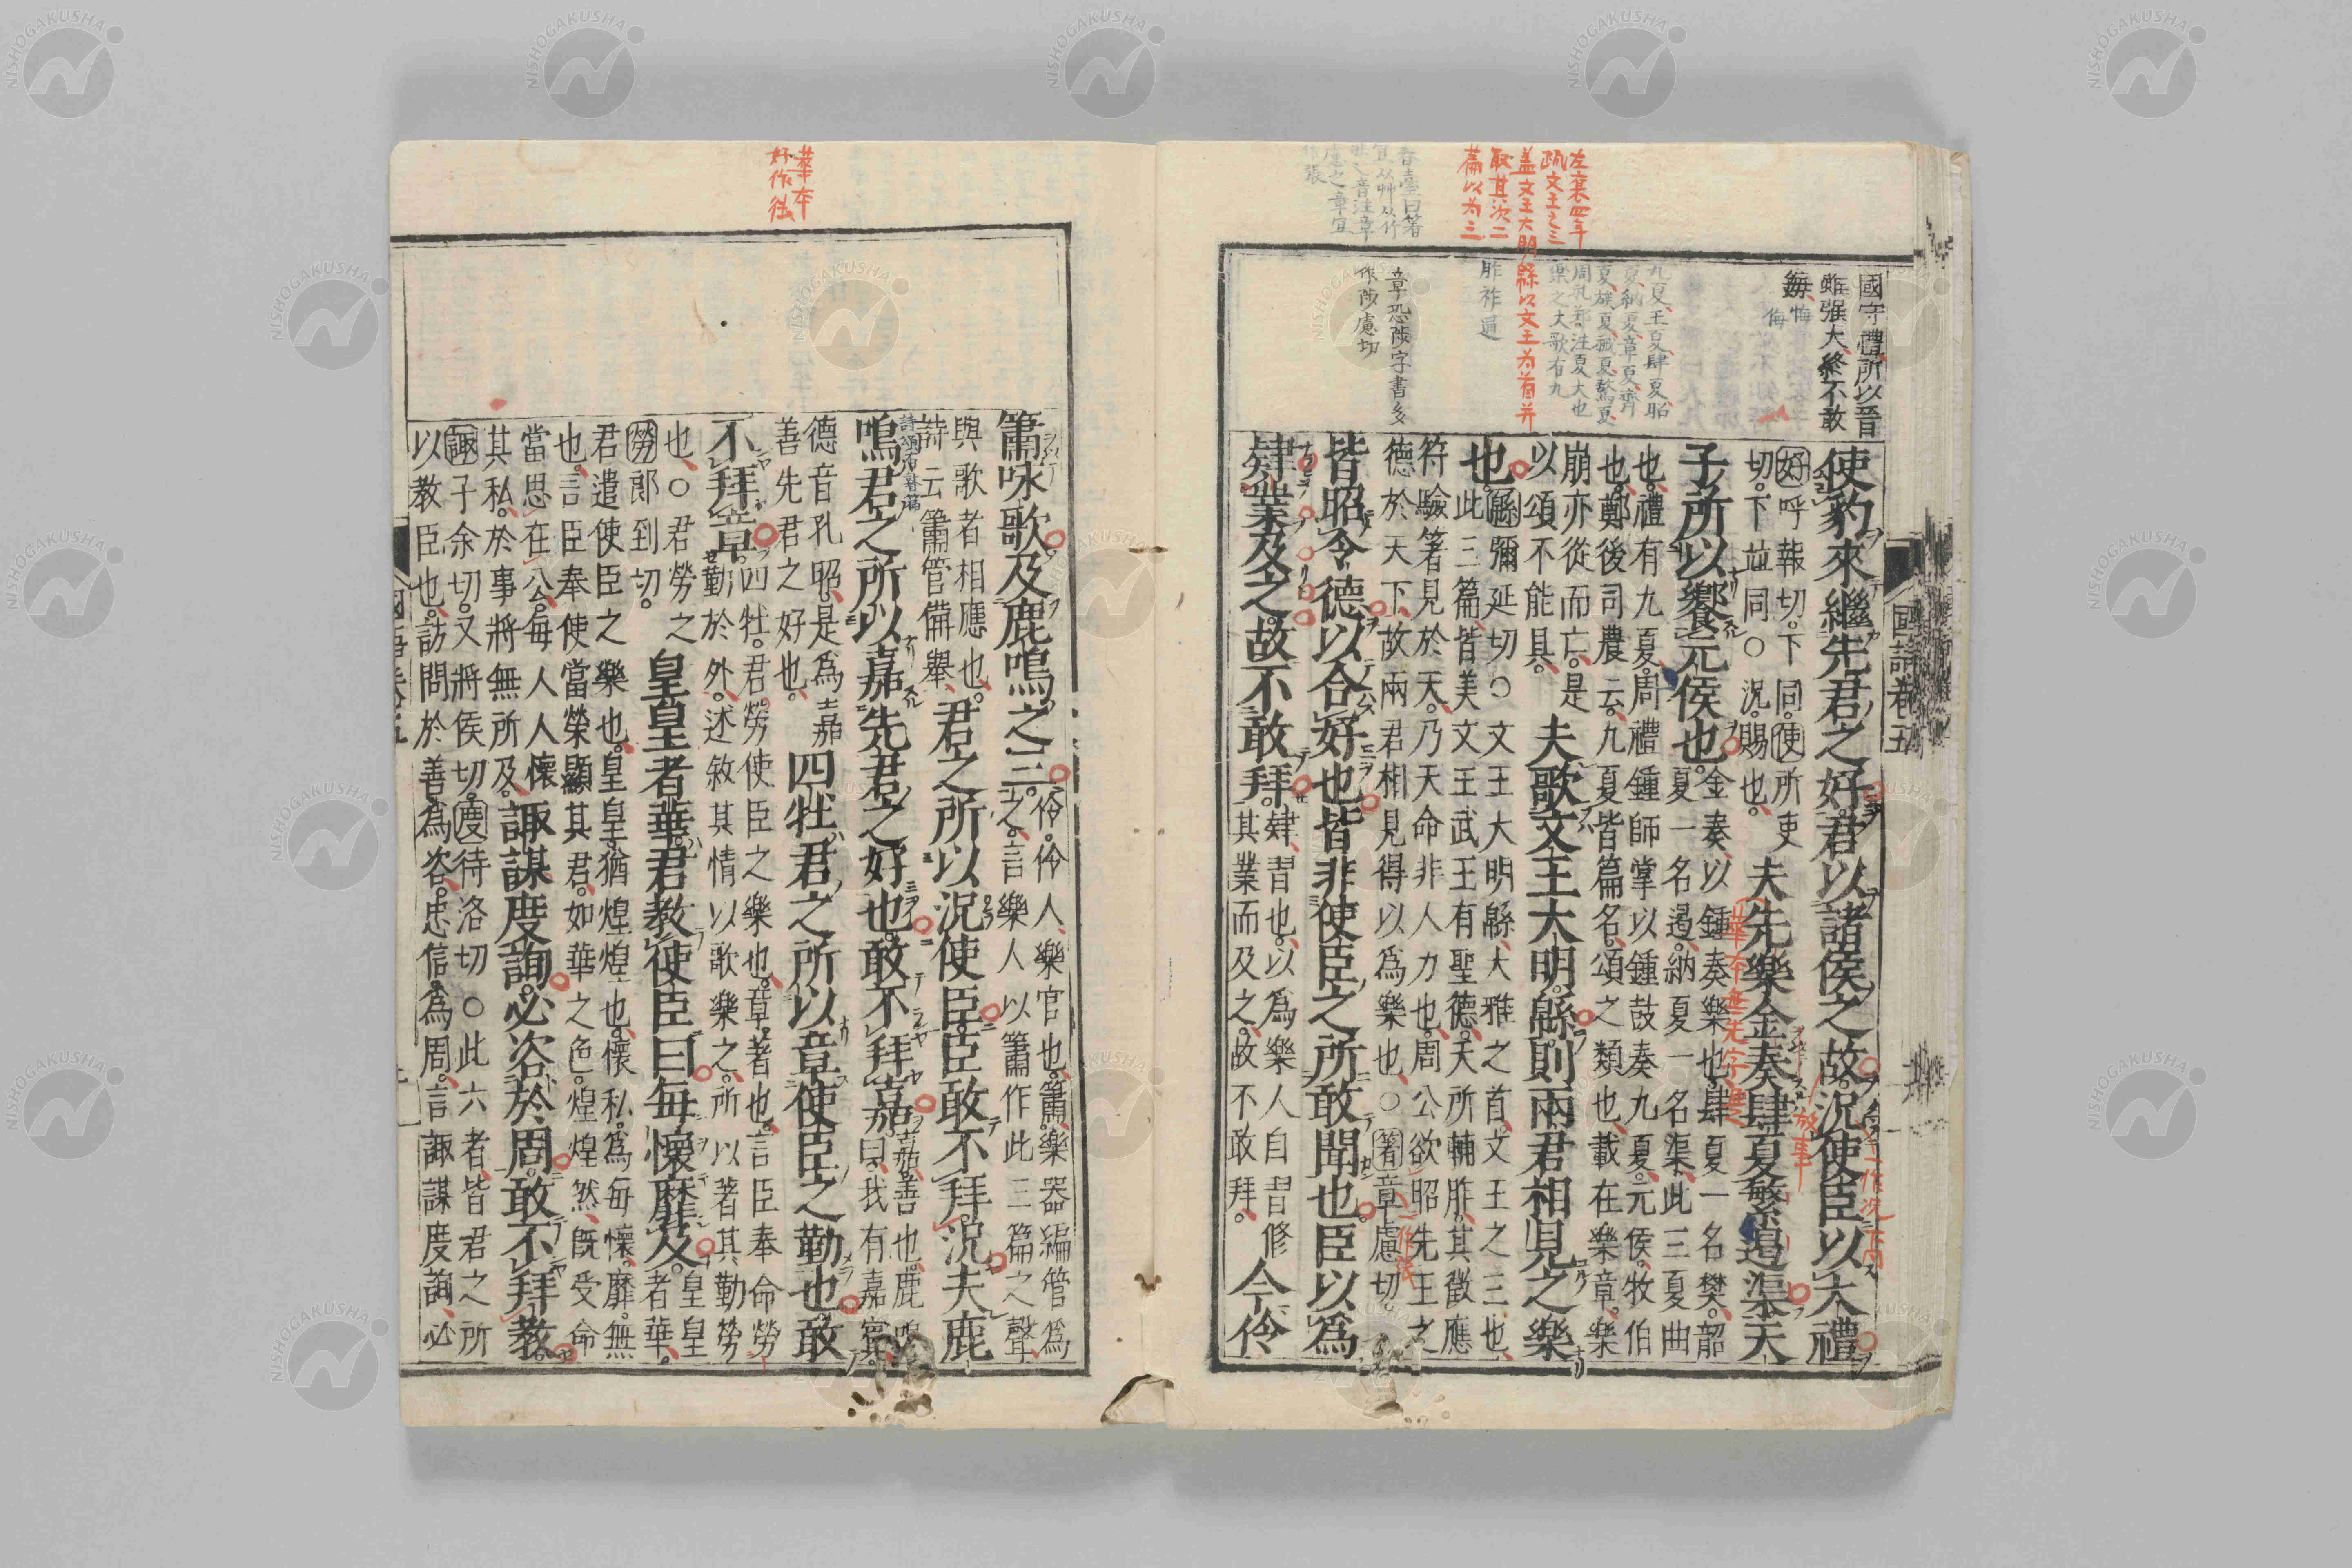 國守禮所以晉
雖强大終不敢
侮
九夏、王夏、肆夏、昭
夏、納夏、章夏、齊
夏、族夏、祴夏、驁夏、
周礼鄭注夏大也
樂之大歌有九
胙祚通
章恐陟字書多
作陟慮切
左襄四年
疏文王之三
盖文王大明緜以文王为首并
取其次二
篇以为三
春臺曰箸
宜从艸从竹
非之音注章
慮之章宜
作張
國語卷五
使豹來繼先君之好君以諸侯之故況使臣以大禮
好呼報切。下同。使所吏
切。下竝同○況。賜也。
夫先樂金奏肆夏繁遏渠天
子所以饗元侯也。
金奏、以鍾奏樂也、肆夏一名樊。韶
夏一名遏。納夏一名渠。此三夏曲
也。禮有九夏。周禮鍾師掌以鍾鼓奏九夏。元侯。牧伯
也。鄭後司農云。九夏皆篇名。頌之類也、載在樂章。樂
崩亦從而亡。是
以頌不能具。
夫歌文王大明緜則兩君相見之樂
也。
緜彌延切○文王大明緜、大雅之首。文王之三也、
此三篇、皆美文王武王有聖德。天所輔胙、其徵應
符驗箸見於天。乃天命非人力也。周公欲昭先王之
德於天下、故兩君相見得以爲樂也、○箸章慮切。
皆昭令德以合好也皆非使臣之所敢聞也。臣以爲
肄業及之。故不敢拜。
肄、習也、以爲樂人自習修
其業而及之、故不敢拜。
今伶
華本無先字是
故事
一作況下同
華本
好作往
簫咏歌及鹿鳴之三。
伶。伶人、樂官也。簫。樂器編管爲
之、言樂人以簫作此三篇之聲、
與歌者相應也。
辯云簫管備舉、
詩頌有瞽篇
君之所以況使臣臣敢不拜況夫鹿
鳴君之所以嘉先君之好也。敢不拜嘉。
嘉善也。鹿鳴
曰。我有嘉賓。
德音孔昭。是爲嘉
善先君之好也。
四牡君之所以章使臣之勤也敢
不拜章。
四牡。君。勞使臣之樂也、章。著也。言臣奉命勞
勤於外。述敘其情以歌樂之、所以著其勤勞
也、○君勞之
勞郎到切。
皇皇者華。君教使臣曰每懷靡及。
皇皇
者華。
君遣使臣之樂也。皇皇。猶煌煌也。懷私爲每懷。靡。無
也。言臣奉使當榮顯其君。如華之色煌煌然、旣受命
當思在公。每人人懷
其私。於事將無所及。
諏謀度詢。必咨於周。敢不拜教。
諏子余切。又將侯切。度待洛切○此六者、皆君之所
以教臣也。訪問於善爲咨。忠信爲周。言諏謀度詢、必